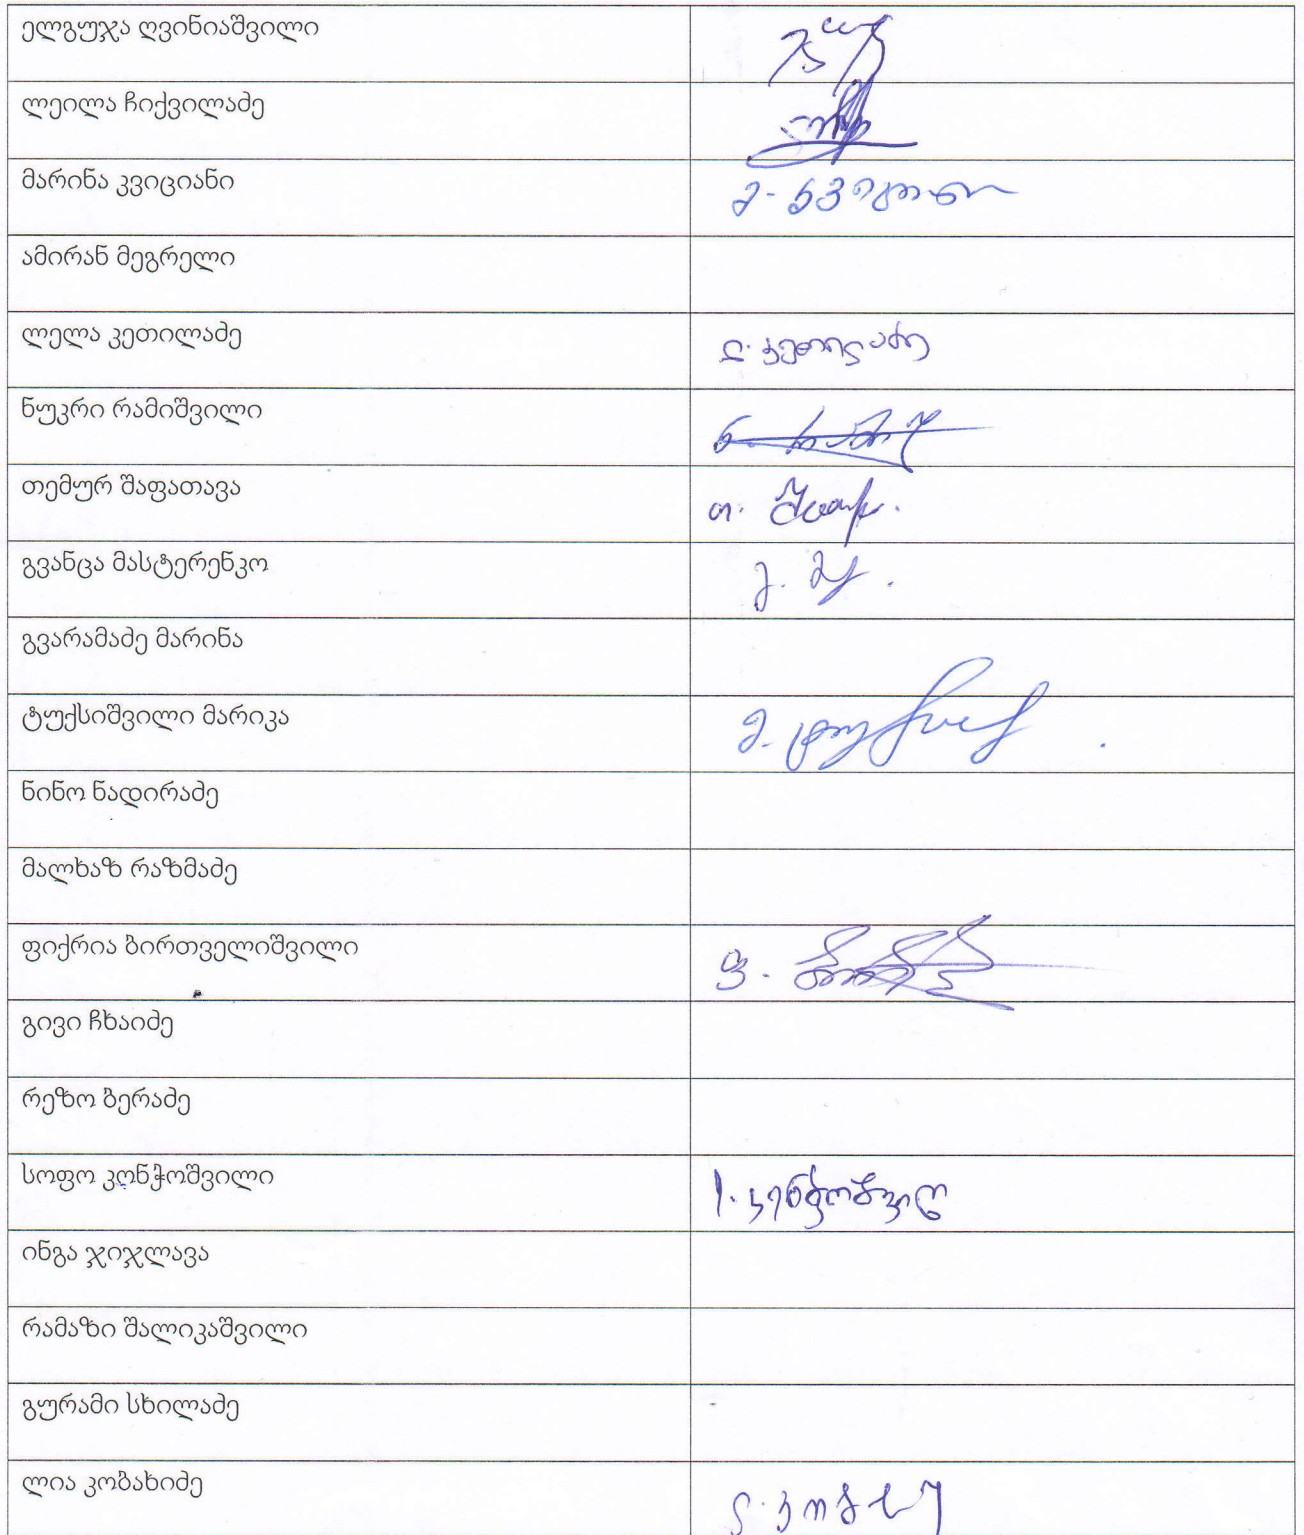 ელგუჯა ღვინიაშვილი
ლეილა ჩიქვილაძე
მარინა კვიციანი
ამირან მეგრელი
ლელა კეთილაძე
ლ. კეთილაძე
ნუკრი რამიშვილი
თემურ შაფათავა
გვანცა მასტერენკო
გვარამაძე მარინა
ტუქსიშვილი მარიკა
ნინო ნადირაძე
მალხაზ რაზმაძე
ფიქრია ბირთველიშვილი
გივი ჩხაიძე
რეზო ბერაძე
სოფო კონჭოშვილი
ინგა ჯიჯლავა
რამაზი შალიკაშვილი
გურამი სხილაძე
ლია კობახიძე